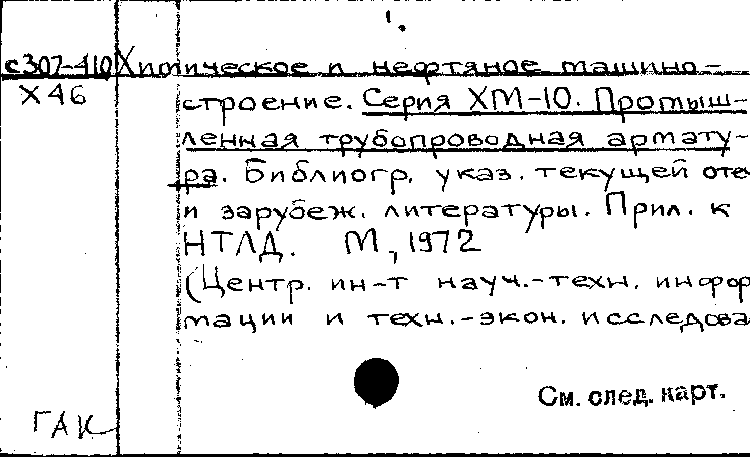 1.
с307-410 Химическое и нефтяное машино-
Х46 строение. Серия ХМ-10. Промыш-
ленная трубопроводная армату-
ра. Библиогр. указ. текущей оте
и зарубеж. литературы. Прил. к
НТЛД. М., 1972
(Центр. ин-т науч.-техн. инфор
мации и техн.-экон. исследова
См. след. карт.
ГАК